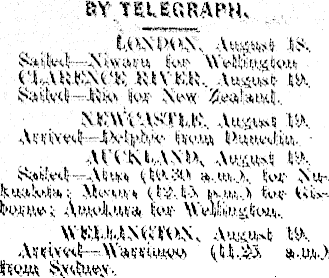 BY TELEGRAPH.
LONDON, August 18.
Sailed—Niwaru for Wellington
CLARENCE RIVER, August 19.
Sailed—Rio for New Zealand.
NEWCASTLE, August 19.
Arrived—Delphic from Dunedin.
AUCKLAND, August 19.
Sailed—Atua (10.30 a.m.), for Nu-
kualofa; Moura (12.15 p.m.) for Gis-
borne; Amokura for Wellington.
WELLINGTON, August 19.
Arrived—Warrimoo (11.25 a.m.)
from Sydney.